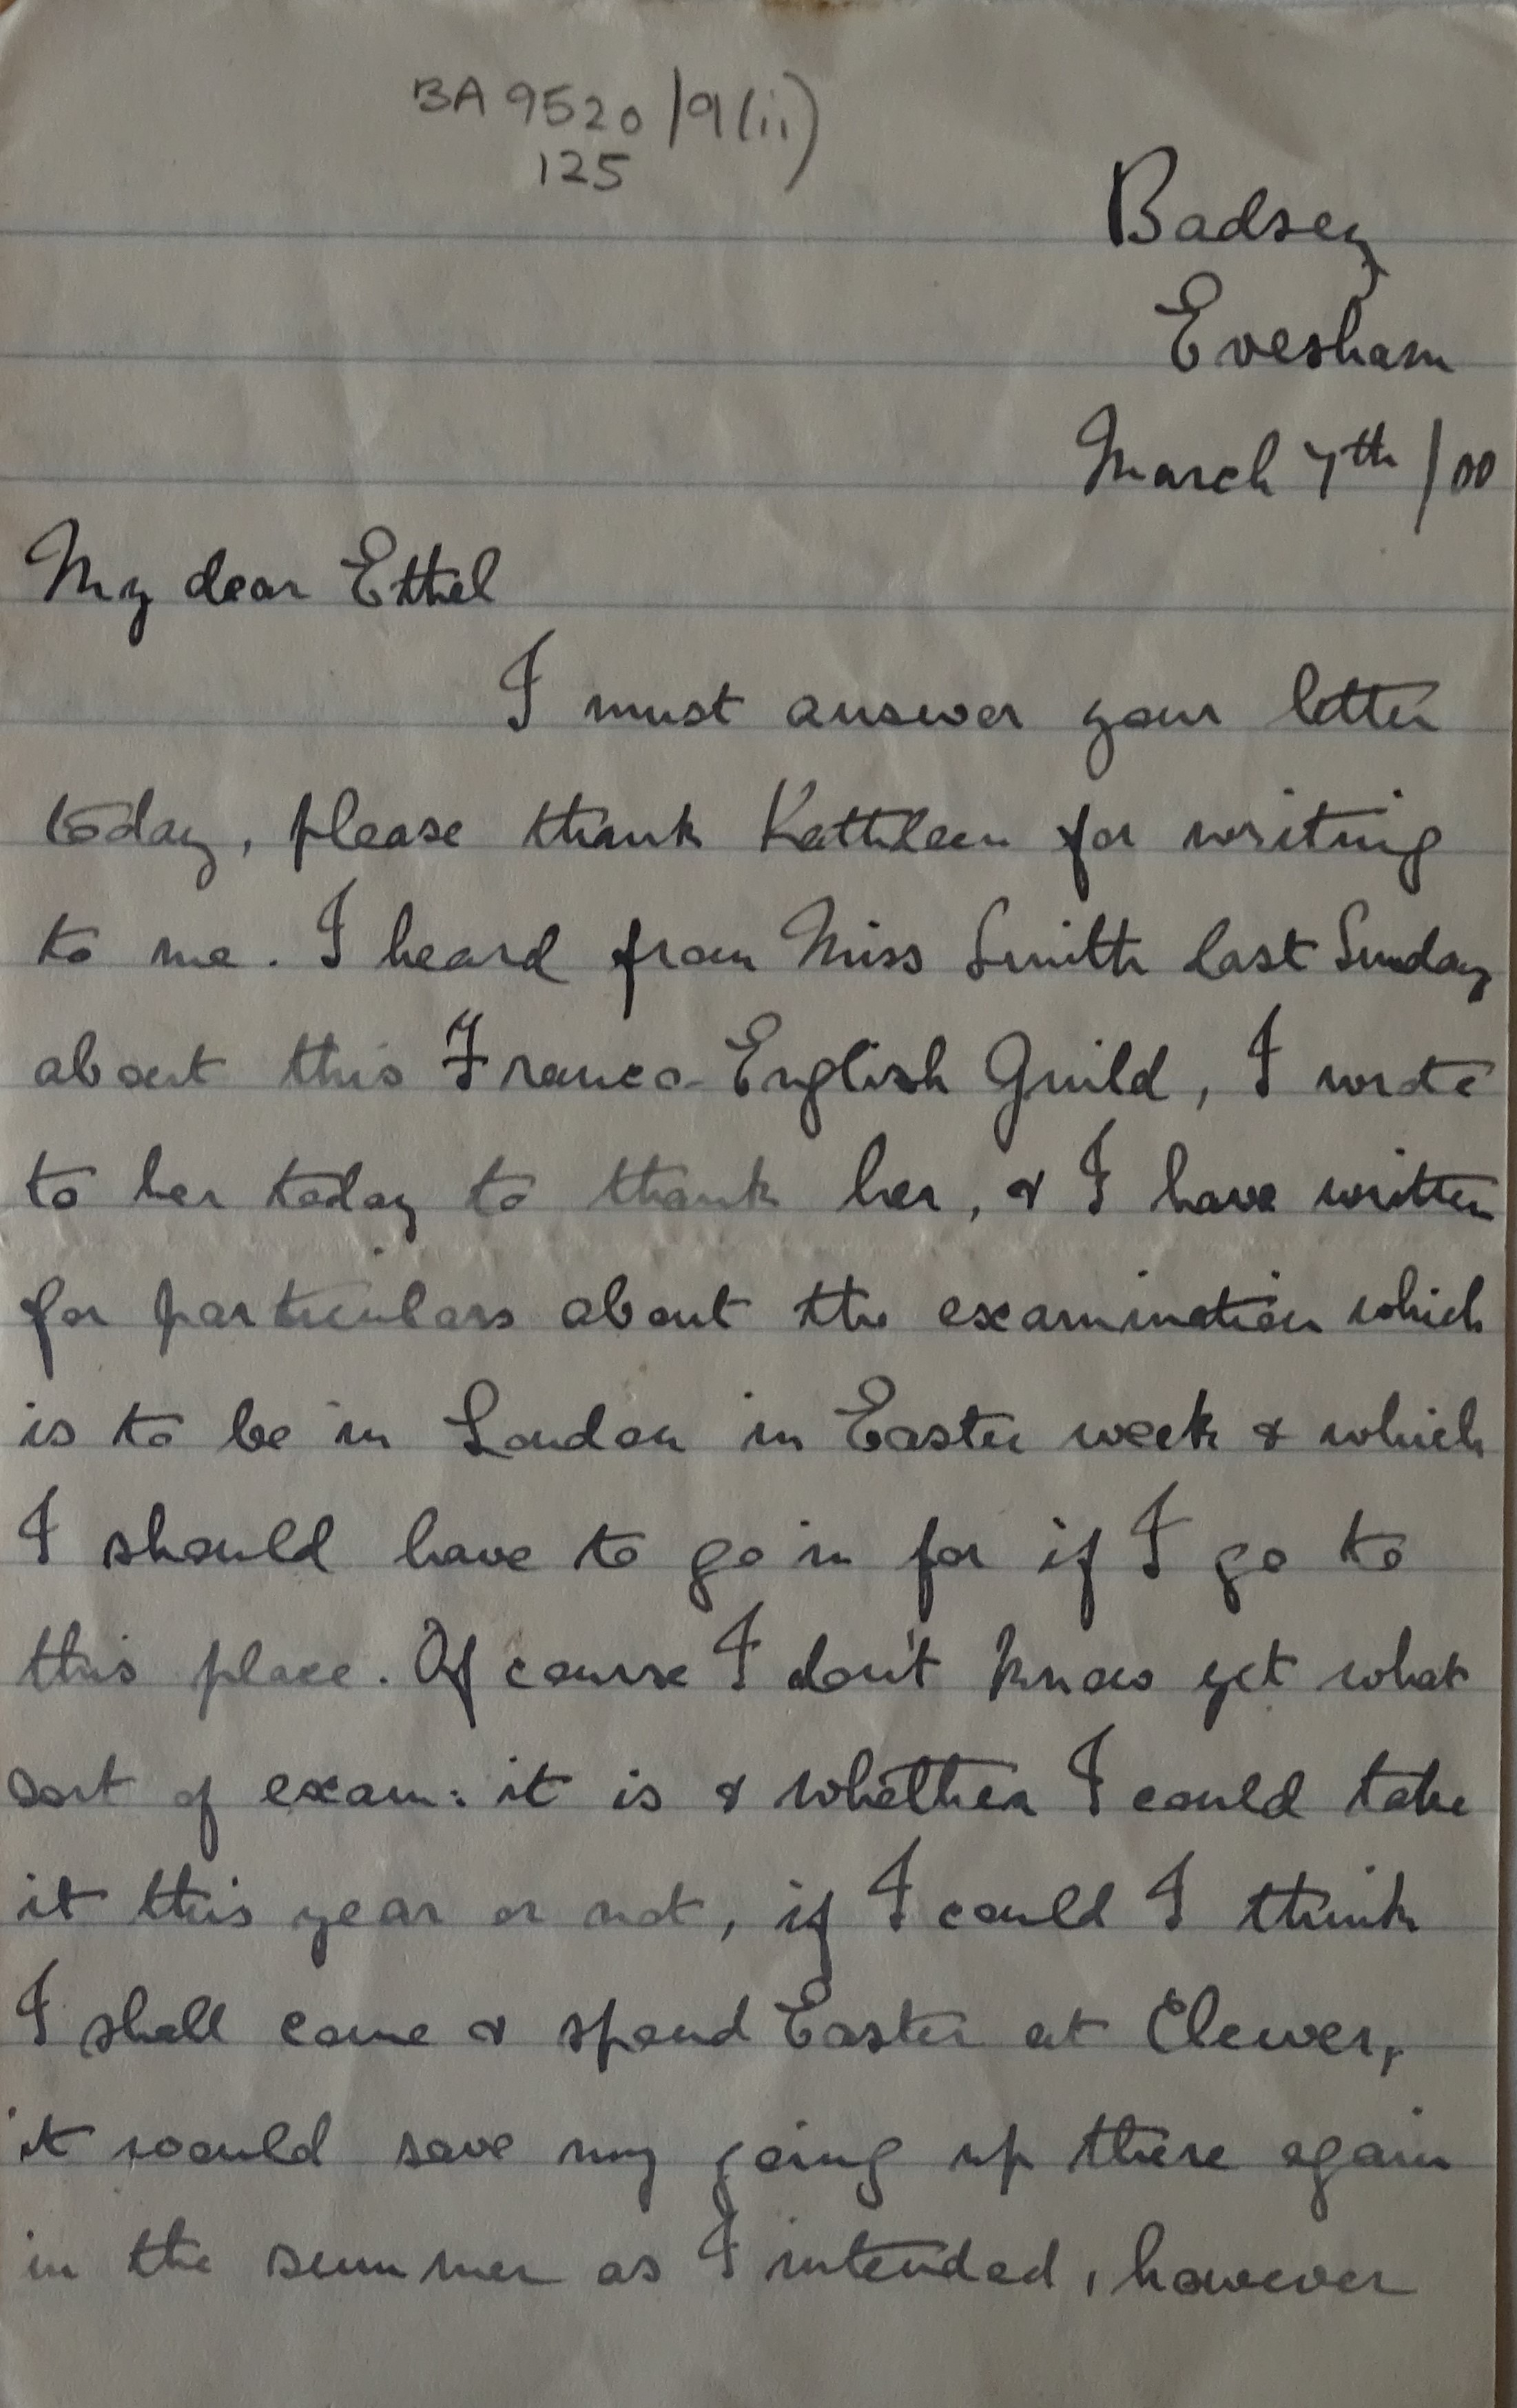 BA 9520/9(ii)
125
Badsey
Evesham
March 7th/00
My dear Ethel
I must answer your letter
today, please thank Kathleen for writing
to me. I heard from Miss Smith last Sunday
about this Franco-English Guild, I wrote
to her today to thank her, & I have written
for particulars about the examination which
is to be in London in Easter week & which
I should have to go in for if I go to
this place. Of course I don't know yet what
sort of exam: it is & whether I could take
it this year or not, if I could I think
I shall come & spend Easter at Clewer,
it would save my going up there again
in the summer as I intended, however